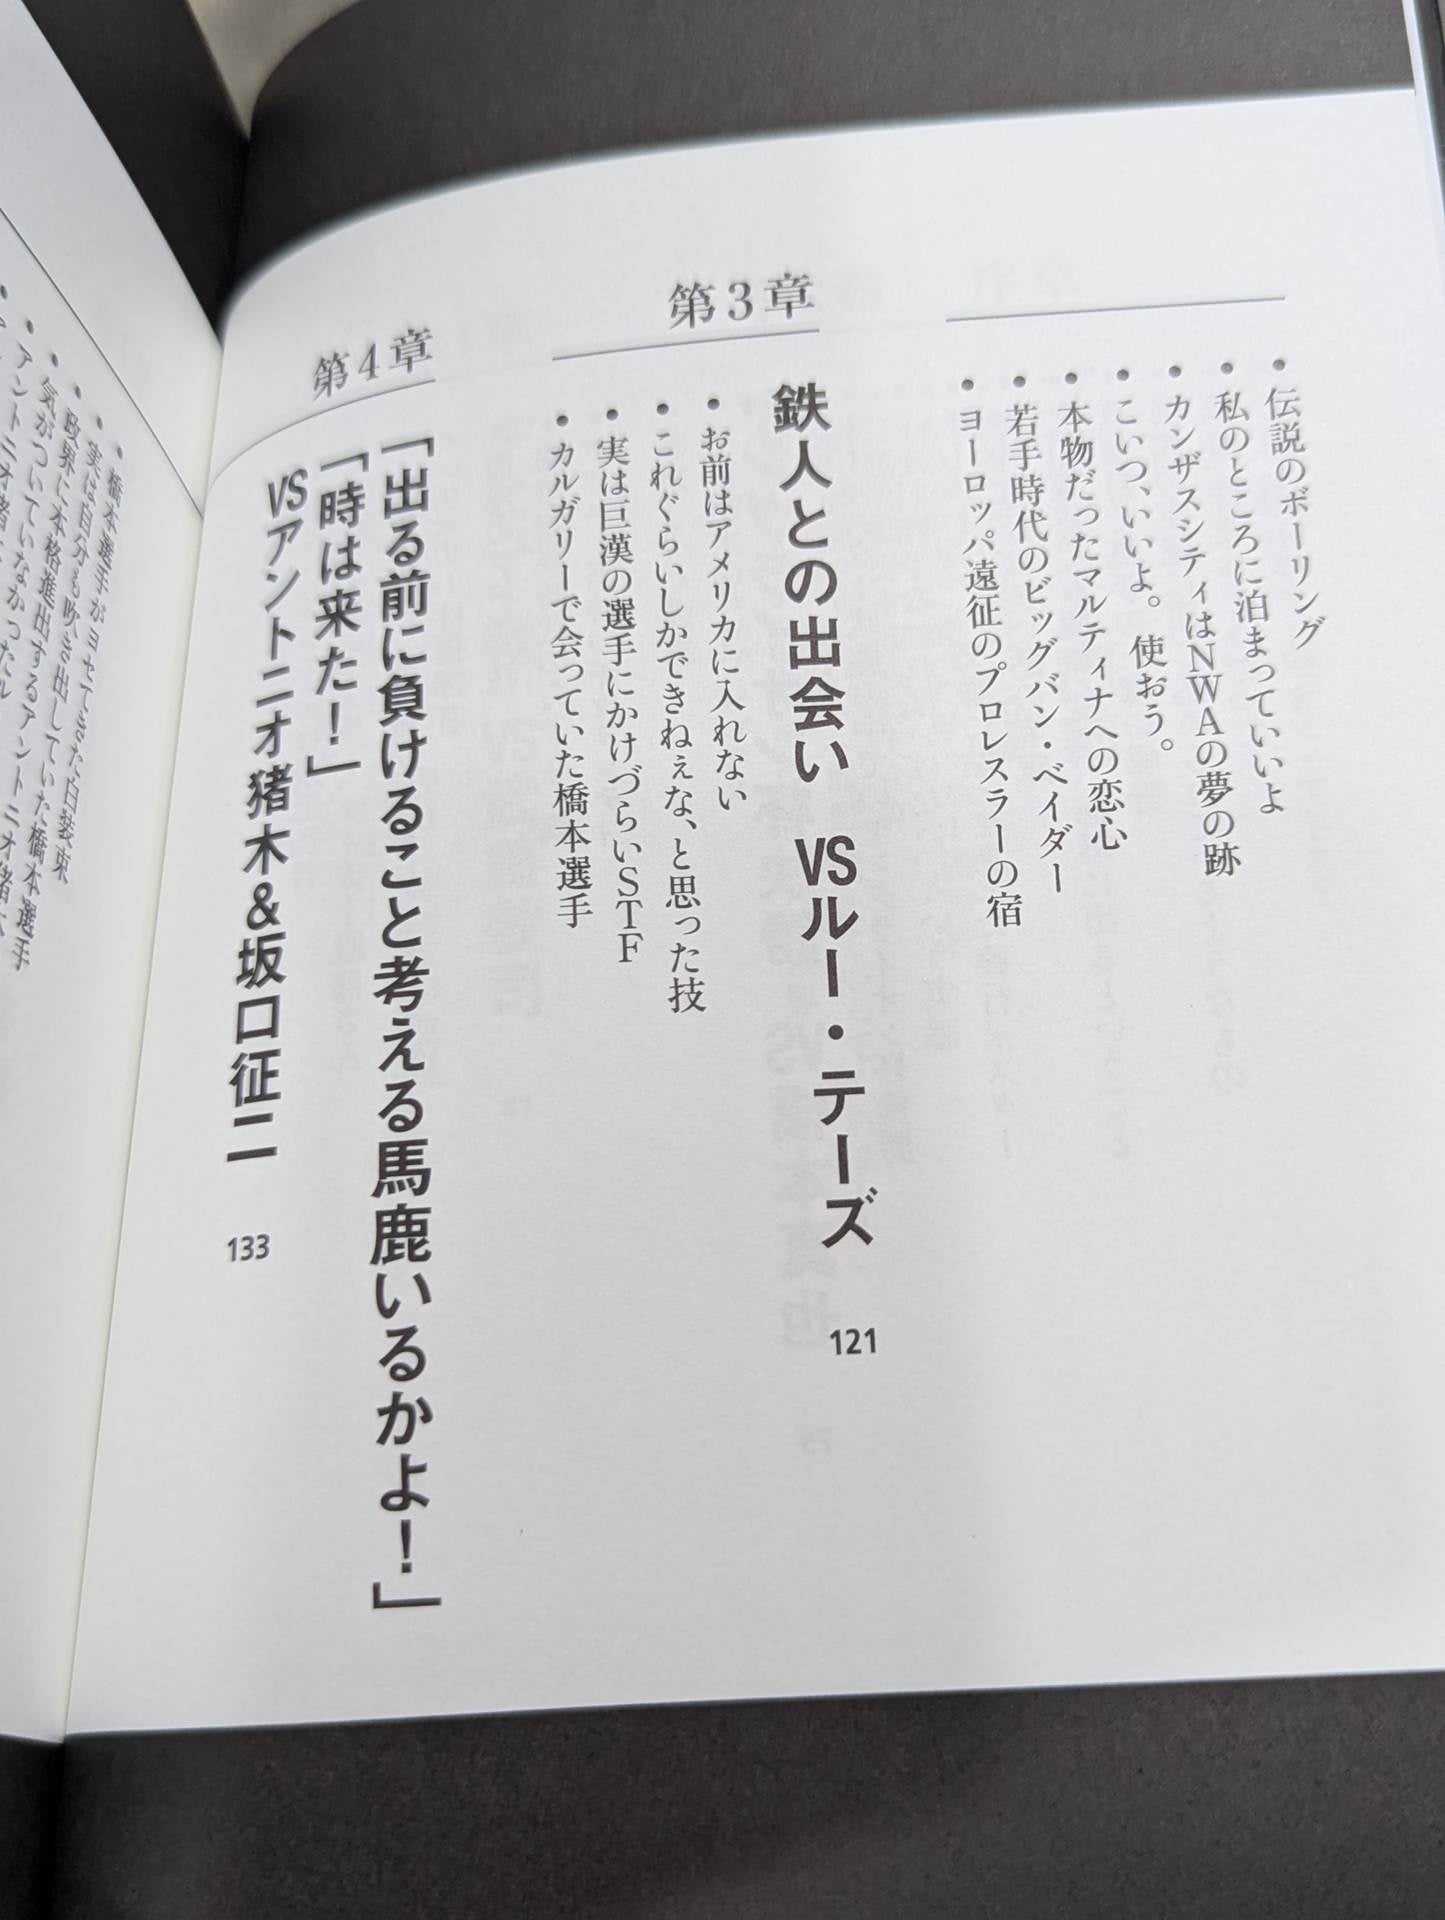 • 伝説のボーリング
• 私のところに泊まっていいよ
• カンザスシティはNWAの夢の跡
• こいつ、いいよ。使おう。
• 本物だったマルティナへの恋心
• 若手時代のビッグバン・ベイダー
• ヨーロッパ遠征のプロレスラーの宿
第3章
鉄人との出会い VSルー・テーズ 121
• お前はアメリカに入れない
• これぐらいしかできねぇな、と思った技
• 実は巨漢の選手にかけづらいSTF
• カルガリーで会っていた橋本選手
第4章
「出る前に負けること考える馬鹿いるかよ！」
「時は来た！」
VSアントニオ猪木&坂口征二 133
• 橋本選手がヨセてきた白装束
• 実は自分も吹き出していた橋本選手
• 政界に本格進出するアントニオ猪
• 気がついていなかったル
• アントニオ猪